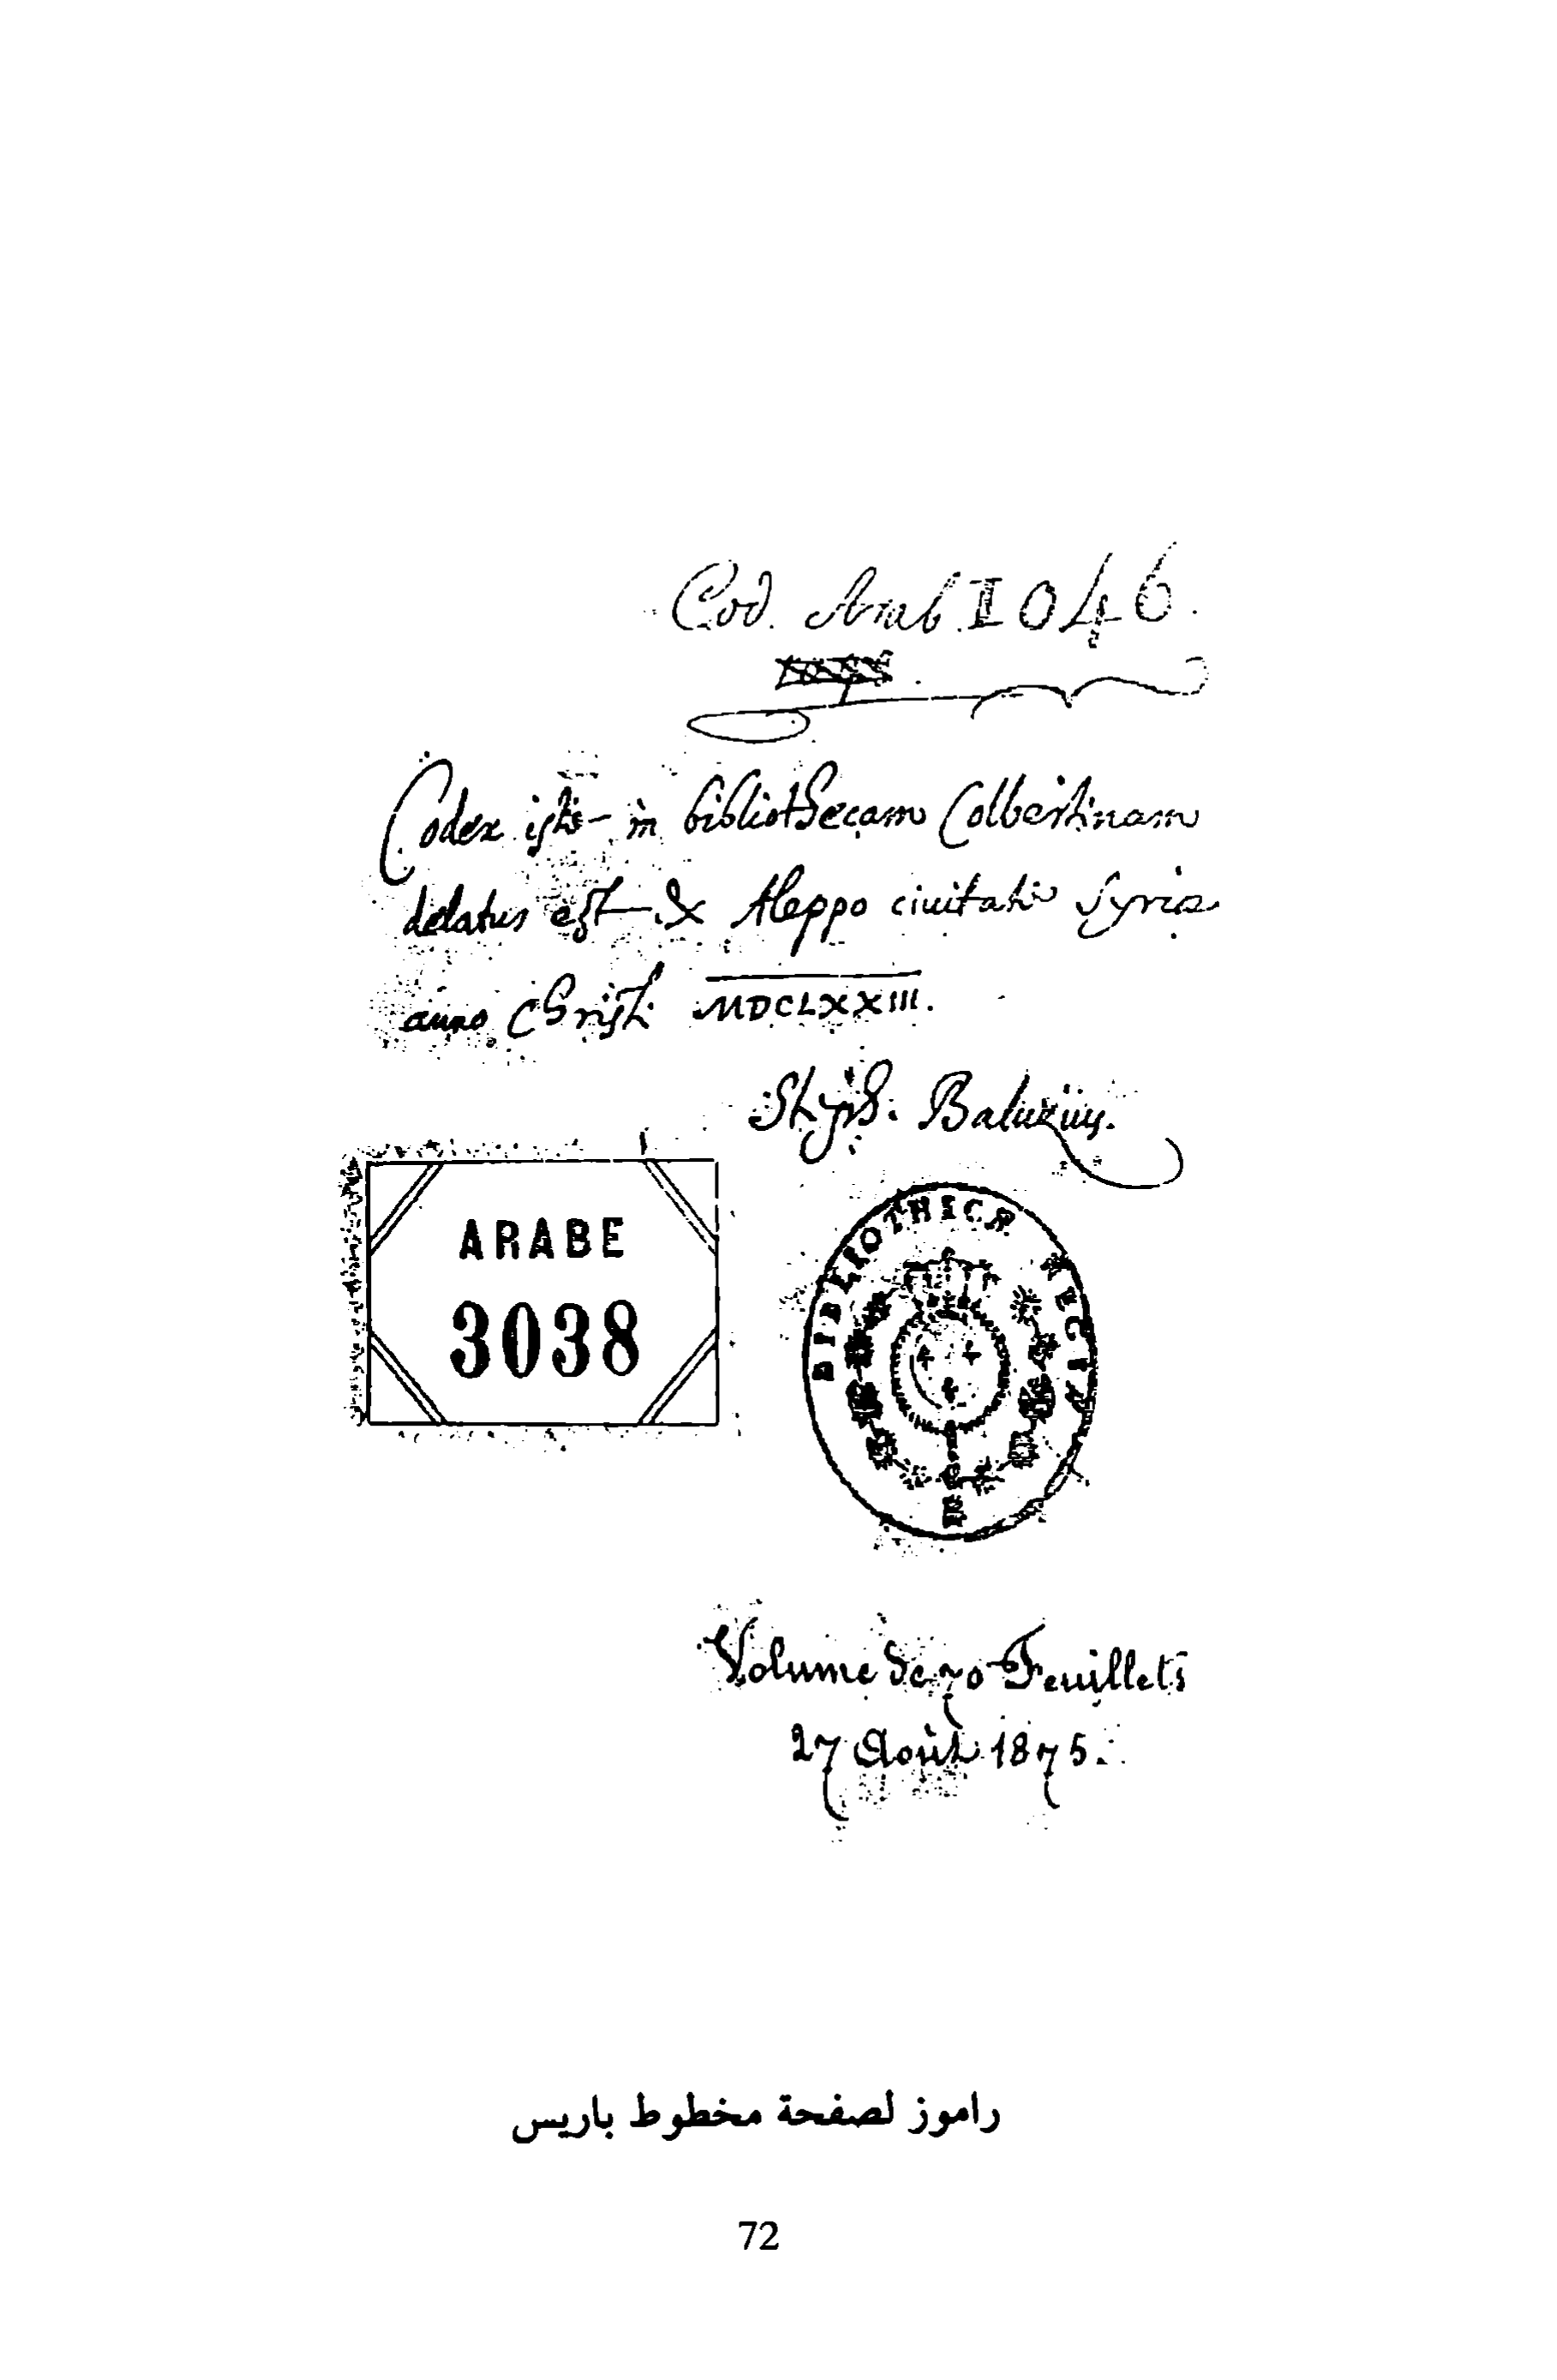 Cod. Arab. I046.
Codex iste in bibliothecam Colbertinam
delatus est ex Aleppo civitate Syriæ
anno Christi MDCLXXIII.
Steph. Baluzius.
ARABE
3038
BIBLIOTHECA REGIA
Volume de 70 Feuillets
27 Août 1875.
راموز لصفحة مخطوط باريس
72